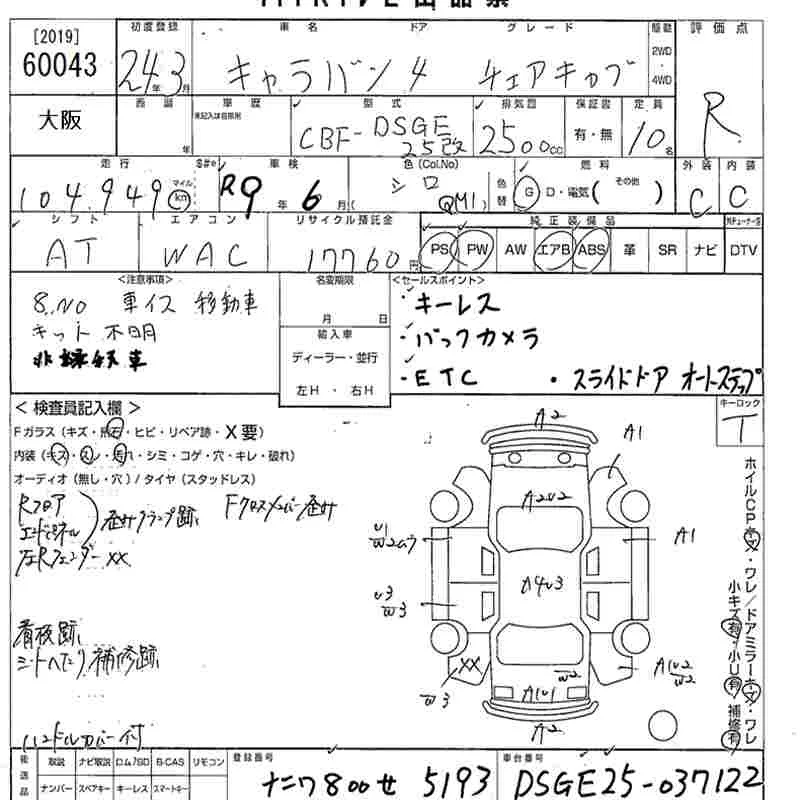 [2019]
60043
初度登録
24年3月
車名 ドア グレード
キャラバン 4 チェアキャブ
駆動
2WD
4WD
評価点
R
大阪
西暦 年
車歴
未記入は自家用
型式
CBF-DSGE25改
排気団
2500cc
保証書
有・無
定員
10名
走行
104,949 マイル km
S#*
車検
R9年6月
色(Col.No)
シロ (QM1)
色替
燃料
G D・電気( その他 )
外装 内装
C C
シフト
AT
エアコン
WAC
リサイクル預託金
17760円
純正装備品
PS PW AW エアB ABS 革 SR ナビ DTV
<注意事項>
8.NO 車イス移動車
キット不明
名変期限
月 日
輸入車
ディーラー・並行
左H ・ 右H
<セールスポイント>
・キーレス
・バックカメラ
・ETC ・スライドドア オートステップ
キーロック
T
< 検査員記入欄 >
Fガラス(キズ・飛石・ヒビ・リペア跡・X要)
内装(キズ・スレ・汚れ・シミ・コゲ・穴・キレ・破れ)
オーディオ(無し・穴)/タイヤ(スタッドレス)
Rフロア
エンドパネル
歪みクランプ跡
Fクロスメンバー歪み
左Rフェンダー XX
着夜跡
シートへたり、補修跡
ハンドルカバー付
A2
A1
A2U2
U1
A1
A4U3
U3
W3
XX
W3
W2
A1U1
A1U2
W2
A2
ホイルCPキズ・ワレ/ドアミラーキズ・ワレ
小キズ有・小U有・補修有
後送品
取説 ナビ取説 D.ム7SD B-CAS リモコン
ナンバー スペアキー キーレス スマートキー
登録番号
ナニワ 800 せ 5193
車台番号
DSGE25-037122